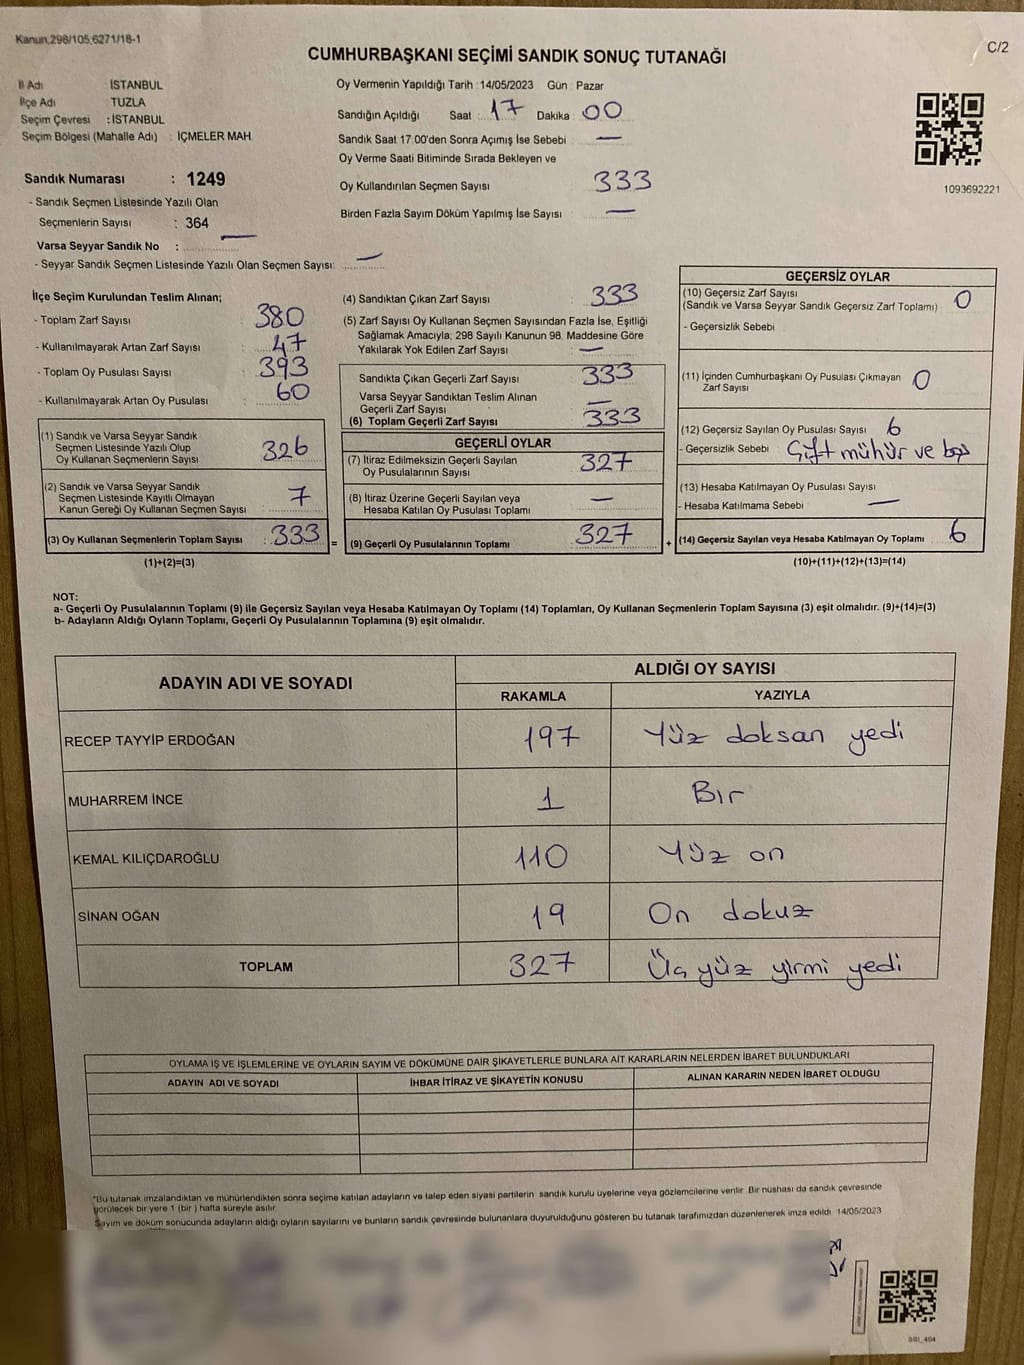 Kanun,298/105,6271/18-1
C/2
CUMHURBAŞKANI SEÇİMİ SANDIK SONUÇ TUTANAĞI
İl Adı : İSTANBUL
İlçe Adı : TUZLA
Seçim Çevresi : İSTANBUL
Seçim Bölgesi (Mahalle Adı) : İÇMELER MAH.
Sandık Numarası : 1249
- Sandık Seçmen Listesinde Yazılı Olan
Seçmenlerin Sayısı : 364
Varsa Seyyar Sandık No : —
- Seyyar Sandık Seçmen Listesinde Yazılı Olan Seçmen Sayısı: —
Oy Vermenin Yapıldığı Tarih : 14/05/2023 Gün : Pazar
Sandığın Açıldığı Saat : 17 Dakika : 00
Sandık Saat 17:00'den Sonra Açımış İse Sebebi : —
Oy Verme Saati Bitiminde Sırada Bekleyen ve
Oy Kullandırılan Seçmen Sayısı : 333
Birden Fazla Sayım Döküm Yapılmış İse Sayısı : —
1093692221
İlçe Seçim Kurulundan Teslim Alınan;
- Toplam Zarf Sayısı : 380
- Kullanılmayarak Artan Zarf Sayısı : 47
- Toplam Oy Pusulası Sayısı : 393
- Kullanılmayarak Artan Oy Pusulası : 60
(1) Sandık ve Varsa Seyyar Sandık
Seçmen Listesinde Yazılı Olup
Oy Kullanan Seçmenlerin Sayısı : 326
(2) Sandık ve Varsa Seyyar Sandık
Seçmen Listesinde Kayıtlı Olmayan
Kanun Gereği Oy Kullanan Seçmen Sayısı : 7
(3) Oy Kullanan Seçmenlerin Toplam Sayısı : 333 =
(1)+(2)=(3)
(4) Sandıktan Çıkan Zarf Sayısı : 333
(5) Zarf Sayısı Oy Kullanan Seçmen Sayısından Fazla İse, Eşitliği
Sağlamak Amacıyla; 298 Sayılı Kanunun 98. Maddesine Göre
Yakılarak Yok Edilen Zarf Sayısı : —
Sandıkta Çıkan Geçerli Zarf Sayısı : 333
Varsa Seyyar Sandıktan Teslim Alınan
Geçerli Zarf Sayısı : —
(6) Toplam Geçerli Zarf Sayısı : 333
GEÇERLİ OYLAR
(7) İtiraz Edilmeksizin Geçerli Sayılan
Oy Pusulalarının Sayısı : 327
(8) İtiraz Üzerine Geçerli Sayılan veya
Hesaba Katılan Oy Pusulası Toplamı : —
(9) Geçerli Oy Pusulalarının Toplamı : 327 +
GEÇERSİZ OYLAR
(10) Geçersiz Zarf Sayısı
(Sandık ve Varsa Seyyar Sandık Geçersiz Zarf Toplamı) : 0
- Geçersizlik Sebebi
(11) İçinden Cumhurbaşkanı Oy Pusulası Çıkmayan
Zarf Sayısı : 0
(12) Geçersiz Sayılan Oy Pusulası Sayısı : 6
- Geçersizlik Sebebi : Çift mühür ve boş
(13) Hesaba Katılmayan Oy Pusulası Sayısı
- Hesaba Katılmama Sebebi : —
(14) Geçersiz Sayılan veya Hesaba Katılmayan Oy Toplamı : 6
(10)+(11)+(12)+(13)=(14)
NOT:
a- Geçerli Oy Pusulalarının Toplamı (9) ile Geçersiz Sayılan veya Hesaba Katılmayan Oy Toplamı (14) Toplamları, Oy Kullanan Seçmenlerin Toplam Sayısına (3) eşit olmalıdır. (9)+(14)=(3)
b- Adayların Aldığı Oyların Toplamı, Geçerli Oy Pusulalarının Toplamına (9) eşit olmalıdır.
ADAYIN ADI VE SOYADI
ALDIĞI OY SAYISI
RAKAMLA YAZIYLA
RECEP TAYYİP ERDOĞAN 197 Yüz doksan yedi
MUHARREM İNCE 1 Bır
KEMAL KILIÇDAROĞLU 110 Yüz on
SİNAN OĞAN 19 On dokuz
TOPLAM 327 Üç yüz yirmi yedi
OYLAMA İŞ VE İŞLEMLERİNE VE OYLARIN SAYIM VE DÖKÜMÜNE DAİR ŞİKAYETLERLE BUNLARA AİT KARARLARIN NELERDEN İBARET BULUNDUKLARI
ADAYIN ADI VE SOYADI İHBAR İTİRAZ VE ŞİKAYETİN KONUSU ALINAN KARARIN NEDEN İBARET OLDUĞU
"Bu tutanak imzalandıktan ve mühürlendikten sonra seçime katılan adayların ve talep eden siyasi partilerin sandık kurulu üyelerine veya gözlemcilerine verilir. Bir nüshası da sandık çevresinde
görülecek bir yere 1 (bir ) hafta süreyle asılır.
Sayım ve döküm sonucunda adayların aldığı oyların sayılarını ve bunların sandık çevresinde bulunanlara duyurulduğunu gösteren bu tutanak tarafımızdan düzenlenerek imza edildi. 14/05/2023